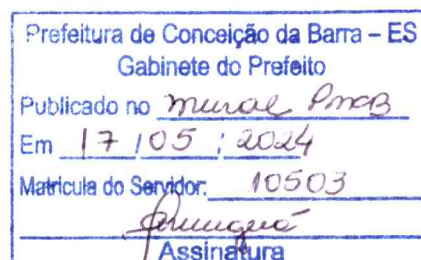 Prefeitura de Conceição da Barra – ES
Gabinete do Prefeito
Publicado no mural PMCB
Em 17 / 05 / 2024
Matrícula do Servidor: 10503
Assinatura